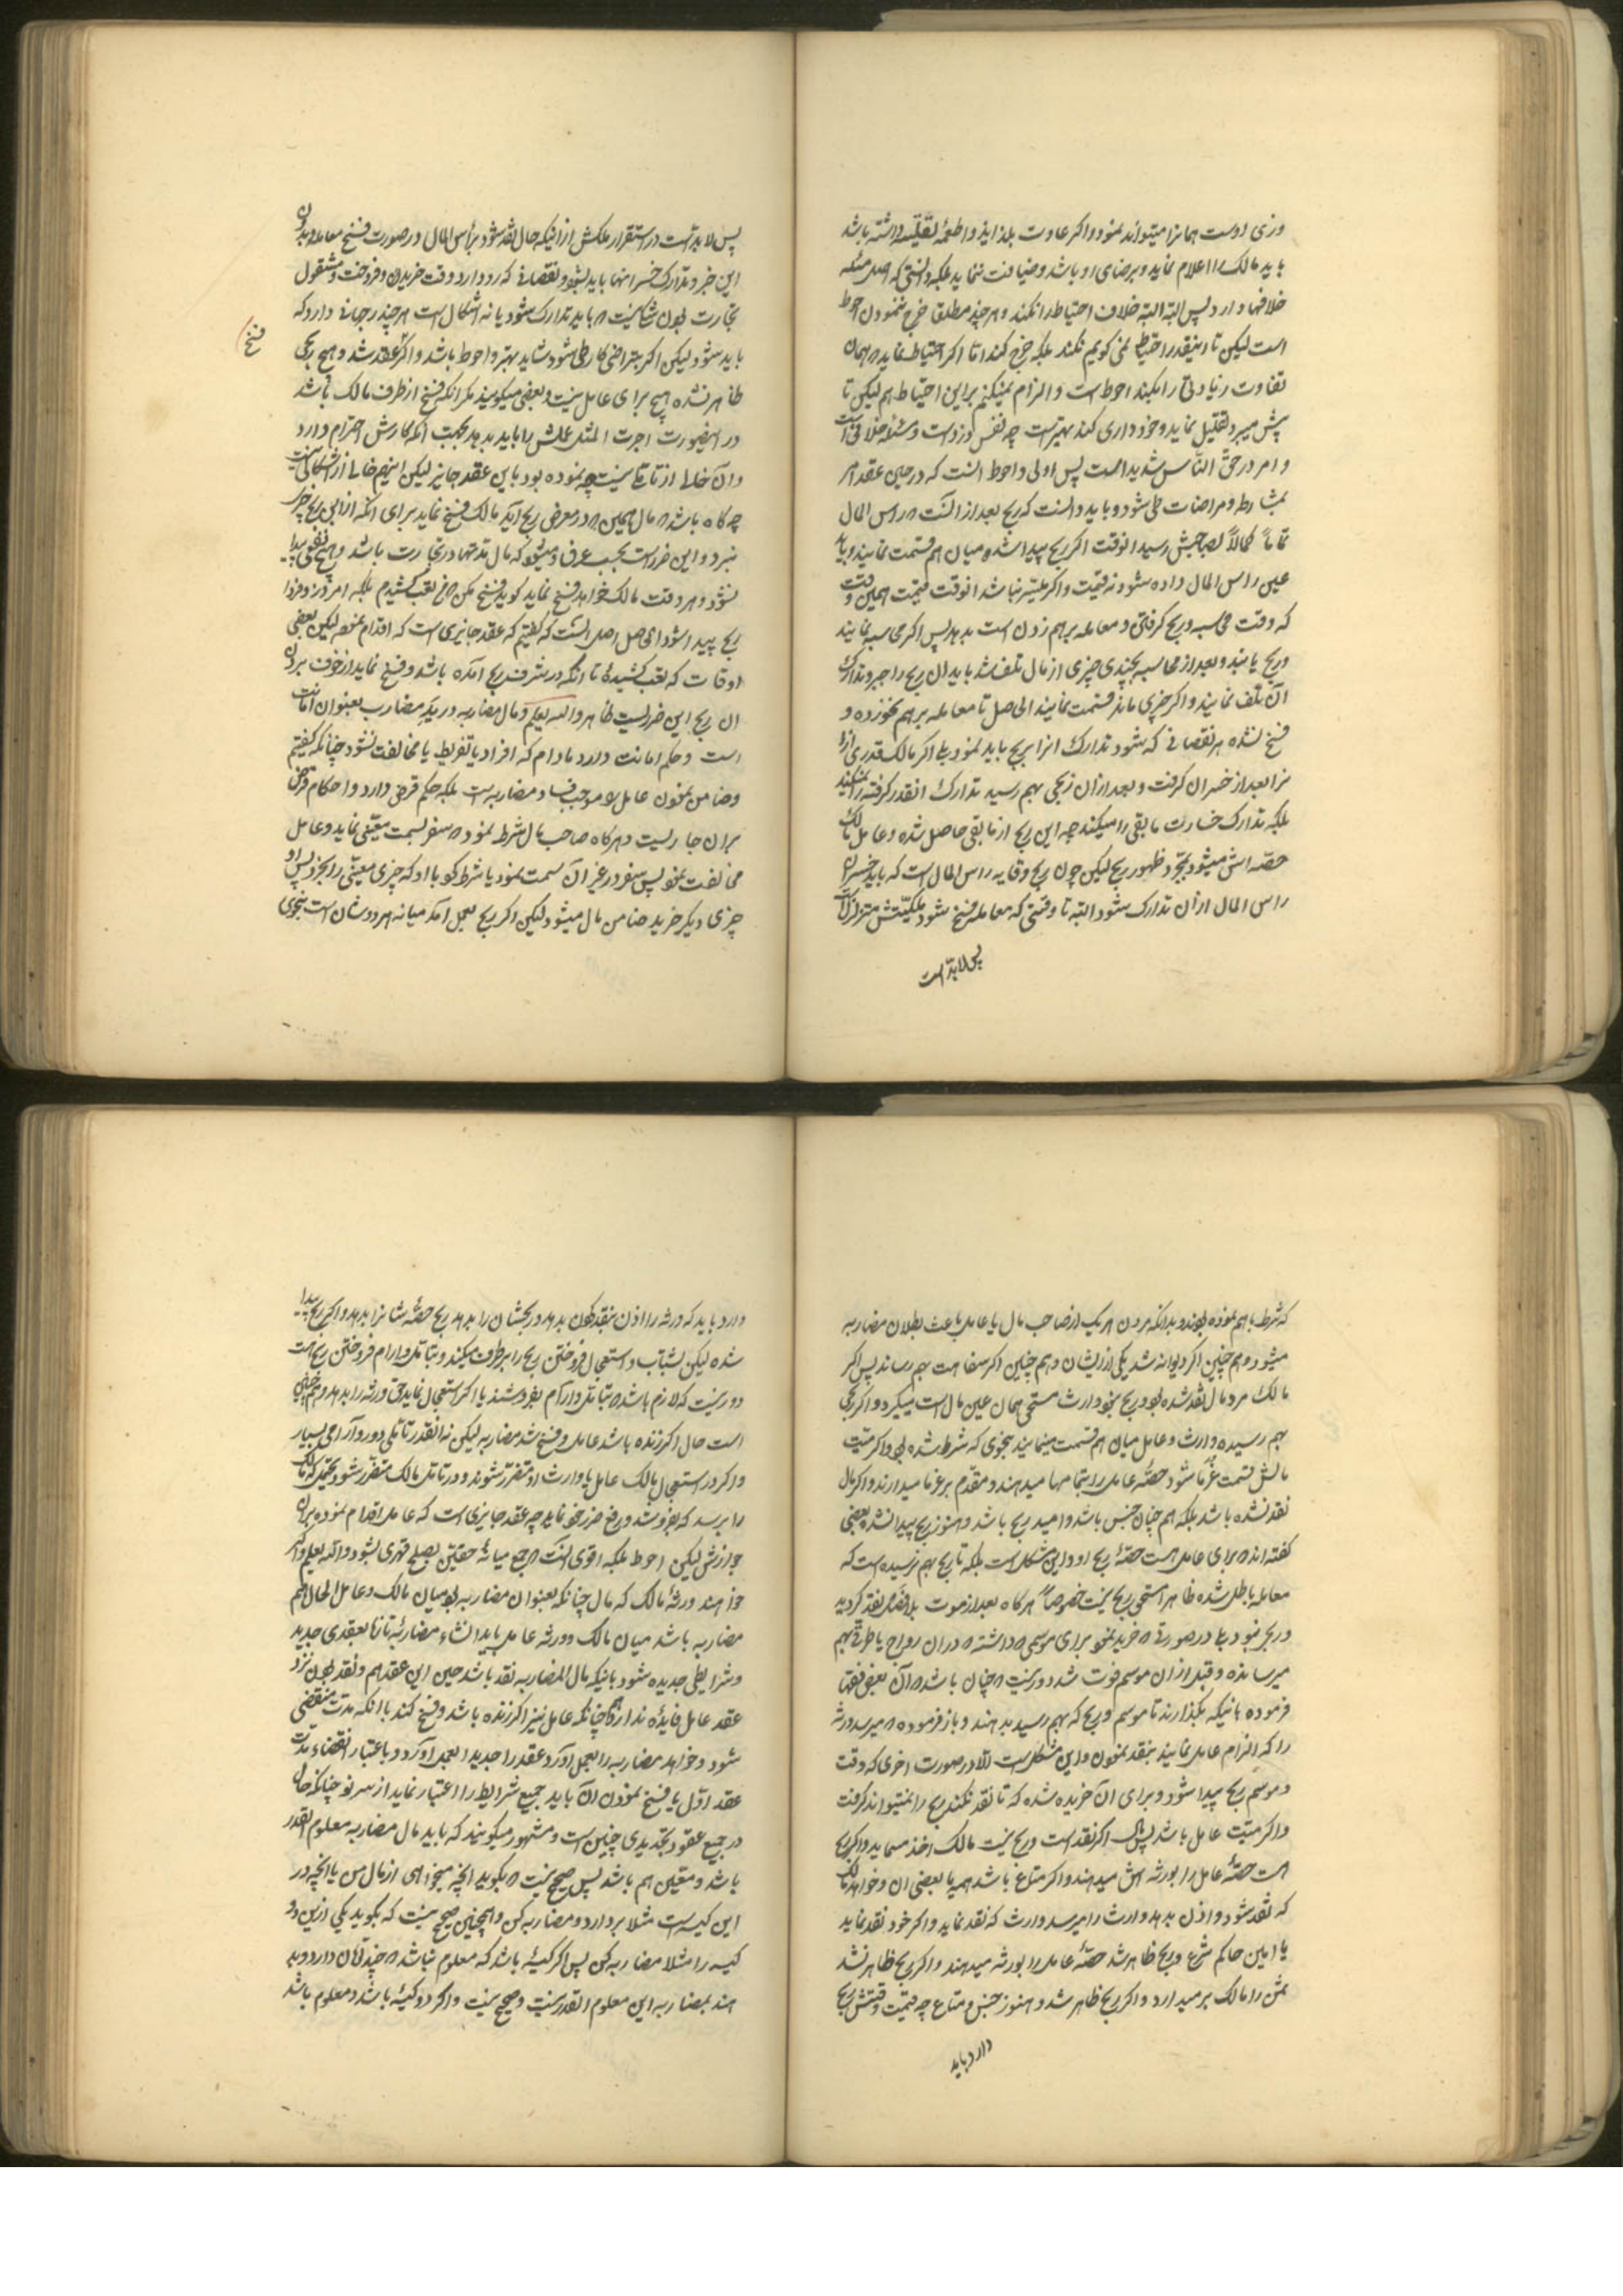 وزی اوست همانرا میتواند نمود و اکر عادت بلذایذ و اطعمه نفیسه داشته باشد
باید مالک را اعلام نماید و برضای او باشد و ضیافت ننماید بلکه دانستی که اصل مسئله
خلافها دارد پس البته البته خلاف احتیاط را نکند و هر چند مطلقا خرج ننمودن احوط
است لیکن تا اینقدر احتیاط نمی کویم نکند بلکه خرج کند اما اکر احتیاط نماید همان
تفاوت و زیادتی را بکند احوط است و الزام نمیکنیم براین احتیاط هم لیکن تا
پیش میبرد تقلیل نماید و خود داری کند بهتر است چه نفس دزد است و مسئله خلافی است
و امر در حق الناس شدید است پس اولی و احوط آنست که در حین عقد امر
بمشارطه و مراضات طی شود و باید دانست که ربح بعد از آنست که راس المال
تماماً کمالاً بصاحبش رسید انوقت اکر ربح پیدا شده میان هم قسمت نمایند و باید
عین راس المال داده شود نه قیمت و اکر عین نباشد انوقت قیمت همین وقت
که وقت محاسبه و ربح کرفتن و معامله برهم زدن است بدهد پس اکر محاسبه نمایند
و ربح یابند و بعد از محاسبه بچندی چیزی از مال تلف شد باید ان ربح را جبر و تدارک
آن تلف نمایند و اکر چیزی ماند قسمت نمایند الی حاصل تا معامله برهم نخورده و
فسخ نشده هر نقصانی که شود تدارک انرا بربح باید نمود بلی اکر مالک قدری ازا
نرا بعد از خسران کرفت و بعد ازان ربحی بهم رسید تدارک انقدر کرفته را نمیکند
بلکه تدارک خسارت مابقی را میکند چه این ربح از مابقی حاصل شده و عامل مالک
حصه اش میشود بمجرد ظهور ربح لیکن چون ربح وقایه راس المال است که باید خسران
راس المال ازان تدارک شود البته تا وقتی که معامله فسخ شود ملکیتش متزلزل
پس لابد است
پس لابد است در استقرار ملکش از اینکه حال نقد شود براس المال و در صورت فسخ معامله بدون
این جبر و تدارک خسرانها باید بشود و نقصانی که رو دارد وقت خریدن و فروختن و مشغول
تجارت بودن شکی نیست که باید تدارک شود یا نه اشکال است هر چند رجحانی دارد که
باید بشود لیکن اکر بتراضی کار طی شود شاید بهتر و احوط باشد و اکر عقد شد و هیچ ربحی
فسخ
ظاهر نشده هیچ برای عامل نیست و بعضی میکویند مکر انکه فسخ از طرف مالک باشد
در اینصورت اجرت المثل عملش را باید بدهد بجهت انکه کارش احترام دارد
و آن خالی از تاملی نیست چه نموده بود باین عقد جایز لیکن اینهم خالی از اشکالی نیست
چه کاه باشد که مال همین که در معرض ربح آید مالک فسخ نماید برای انکه ازاین ربح چیزی
نبرد و این ضرر است بحسب عرف و میشود که مال مدتها در تجارت باشد و هیچ نفعی پیدا
نشود و هر وقت مالک خواهد فسخ نماید کوید فسخ مکن که من تعب کشیدم بلکه امروز و فردا
ربح پیدا شود الحاصل اصل آنست که کفتیم که عقد جایزی است که اقدام نموده لیکن بعضی
اوقات که تعب کشیده تا انکه در شرف ربح آمده باشد و فسخ نماید از خوف بردن
ان ربح این ضرریست ظاهر و الله یعلم و مال مضاربه در ید مضارب بعنوان امانت
است و حکم امانت دارد مادام که افراد یا تفریط یا مخالفت نشود چنانکه کفتیم
و ضامن نمودن عامل را موجب فساد مضاربه است بلکه حکم قرض دارد و احکام قرض
بران جاریست و هرکاه صاحب مال شرط نمود که سفر بسمت معینی نماید و عامل
مخالفت نمود پس سفر در غیر آن سمت نمود یا شرط کرد با او که چیزی معینی را بخرد پس او
چیزی دیکر خرید ضامن مال میشود لیکن اکر ربح بعمل آمد میانه هر دوشان است بنحوی
که شرط باهم نموده بودند و بدانکه مردن هر یک از صاحب مال یا عامل باعث بطلان مضاربه
میشود و هم چنین اکر دیوانه شد یکی از ایشان و هم چنین اکر سفاهت بهم رساند پس اکر
مالک مرد مال نقد شده بود و ربح نبود وارث مستحق همان عین مال است میکیرد و اکر ربحی
بهم رسیده وارث و عامل میان هم قسمت مینمایند بنحوی که شرط شده بود و اکر میت
مالش قسمت غرما شود حصه عامل را بتمامها میدهند و مقدم بر غرما میدارند و اکر مال
نقد نشده باشد بلکه هم چنان جنس باشد و امید ربح باشد و هنوز ربح پیدا نشده بعضی
کفته اند که برای عامل هست حصه ربح او و این مشکل است بلکه تا ربح بهم نرسیده است که
معامله باطل شده ظاهرا مستحق ربح نیست خصوصاً هرکاه بعد از موت بلافصل نقد کردید
و ربحی نبود بلی در صورتی که خرید نمود برای موسمی که داشته که دران رواج یا طرقی بهم
میرسانده و قبل از ان موسم فوت شد دور نیست که چنان باشد که آن بعض فقها
فرموده باینکه بکذارند تا موسم و ربح که بهم رسید بدهند و باز فرموده که میرسد ورثه
را که الزام عامل نمایند بنقد نمودن و این مشکل است الا در صورت اخری که وقت
و موسم ربح پیدا شود و برای آن خریده شده که تا نقد نکند ربح را نمیتواند کرفت
و اکر میت عامل باشد پس مال اکر نقد است و ربح نیست مالک اخذ مینماید و اکر ربح
هست حصه عامل را بورثه اش میدهند و اکر متاع باشد همه یا بعضی ان و خواهد مالک
که نقد شود و اذن بدهد وارث را میرسد وارث که نقد نماید و اکر خود نقد نماید
یا امین حاکم شرع و ربح ظاهر شد حصه عامل را بورثه میدهند و اکر ربح ظاهر نشد
ثمن را مالک بر میدارد و اکر ربح ظاهر شد و هنوز جنس و متاع چه قیمت وقتش ربح
دارد باید
دارد باید که ورثه را اذن بنقد نمودن بدهد و ربحشان را بدهد ربح حصه شانرا بدهد و اکر ربح پیدا
شده لیکن بشتاب و استعجال فروختن ربح را برطرف میکند و بتامل و ارام فروختن ربح هست
دور نیست که لازم باشد که بتامل و آرام بفروشند یا اکر استعجال نماید حق ورثه را بدهد و هم چنین
است حال اکر زنده باشد عامل و فسخ شد مضاربه لیکن نه انقدر تاملی دور و آرامی بسیار
و اکر در استعجال مالک عامل یا وارث او متضرر شوند و در تامل مالک متضرر شود محتمل که مالک
را برسد که بفروشد و رفع ضرر خود نماید چه عقد جایزی است که عامل اقدام نموده بران
جوازش لیکن احوط بلکه اقوی آنست که جمع میانهٔ حقین بصلح قهری بشود والله یعلم و اکر
خواهند ورثهٔ مالک که مال چنانکه بعنوان مضاربه بود میان مالک و عامل الحال هم
مضاربه باشد میان مالک و ورثه عامل باید انشاء مضاربهٔ تازه بعقدی جدید
و شرایطی جدیده شود باینکه مال المضاربه نقد باشد حین این عقد هم و نقد بودن نزد
عقد عامل فایده ندارد همچنانکه عامل نیز اکر زنده باشد و فسخ کند یا انکه مدت منقضی
شود و خواهد مضاربه را بعمل آورد و عقد را جدید العمل اورد و باعتبار انقضاء مدت
عقد اول یا فسخ نمودن آن باید جمیع شرایط را اعتبار نماید از سر نو چنانکه حال
در جمیع عقود تجدیدی چنین است و مشهور میکویند که باید مال مضاربه معلوم القدر
باشد و معین هم باشد پس صحیح نیست که بکوید انچه میخواهی از مال من یا انچه در
این کیسه است مثلا بردار و مضاربه کن و همچنین صحیح نیست که بکوید یکی ازین دو
کیسه را مثلا مضاربه کن پس اکر کیسهٔ باشد که معلوم نباشد که چند تومان دارد و بد
هند بمضاربه این معلوم القدر نیست و صحیح نیست و اکر دو کیسهٔ باشد و معلوم باشد